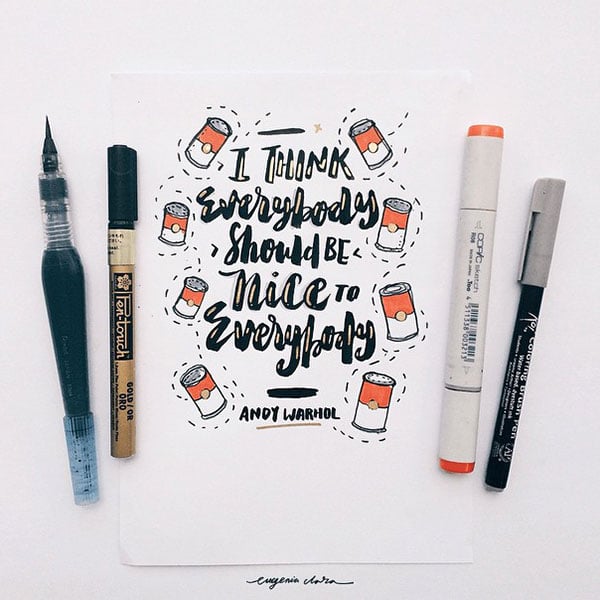 I THINK
Everybody
Should BE
nice TO
Everybody
ANDY WARHOL
Pen-touch
GOLD/OR
ORO
COPIC
sketch
R08
Too
4 511338 003213
eugenia clara